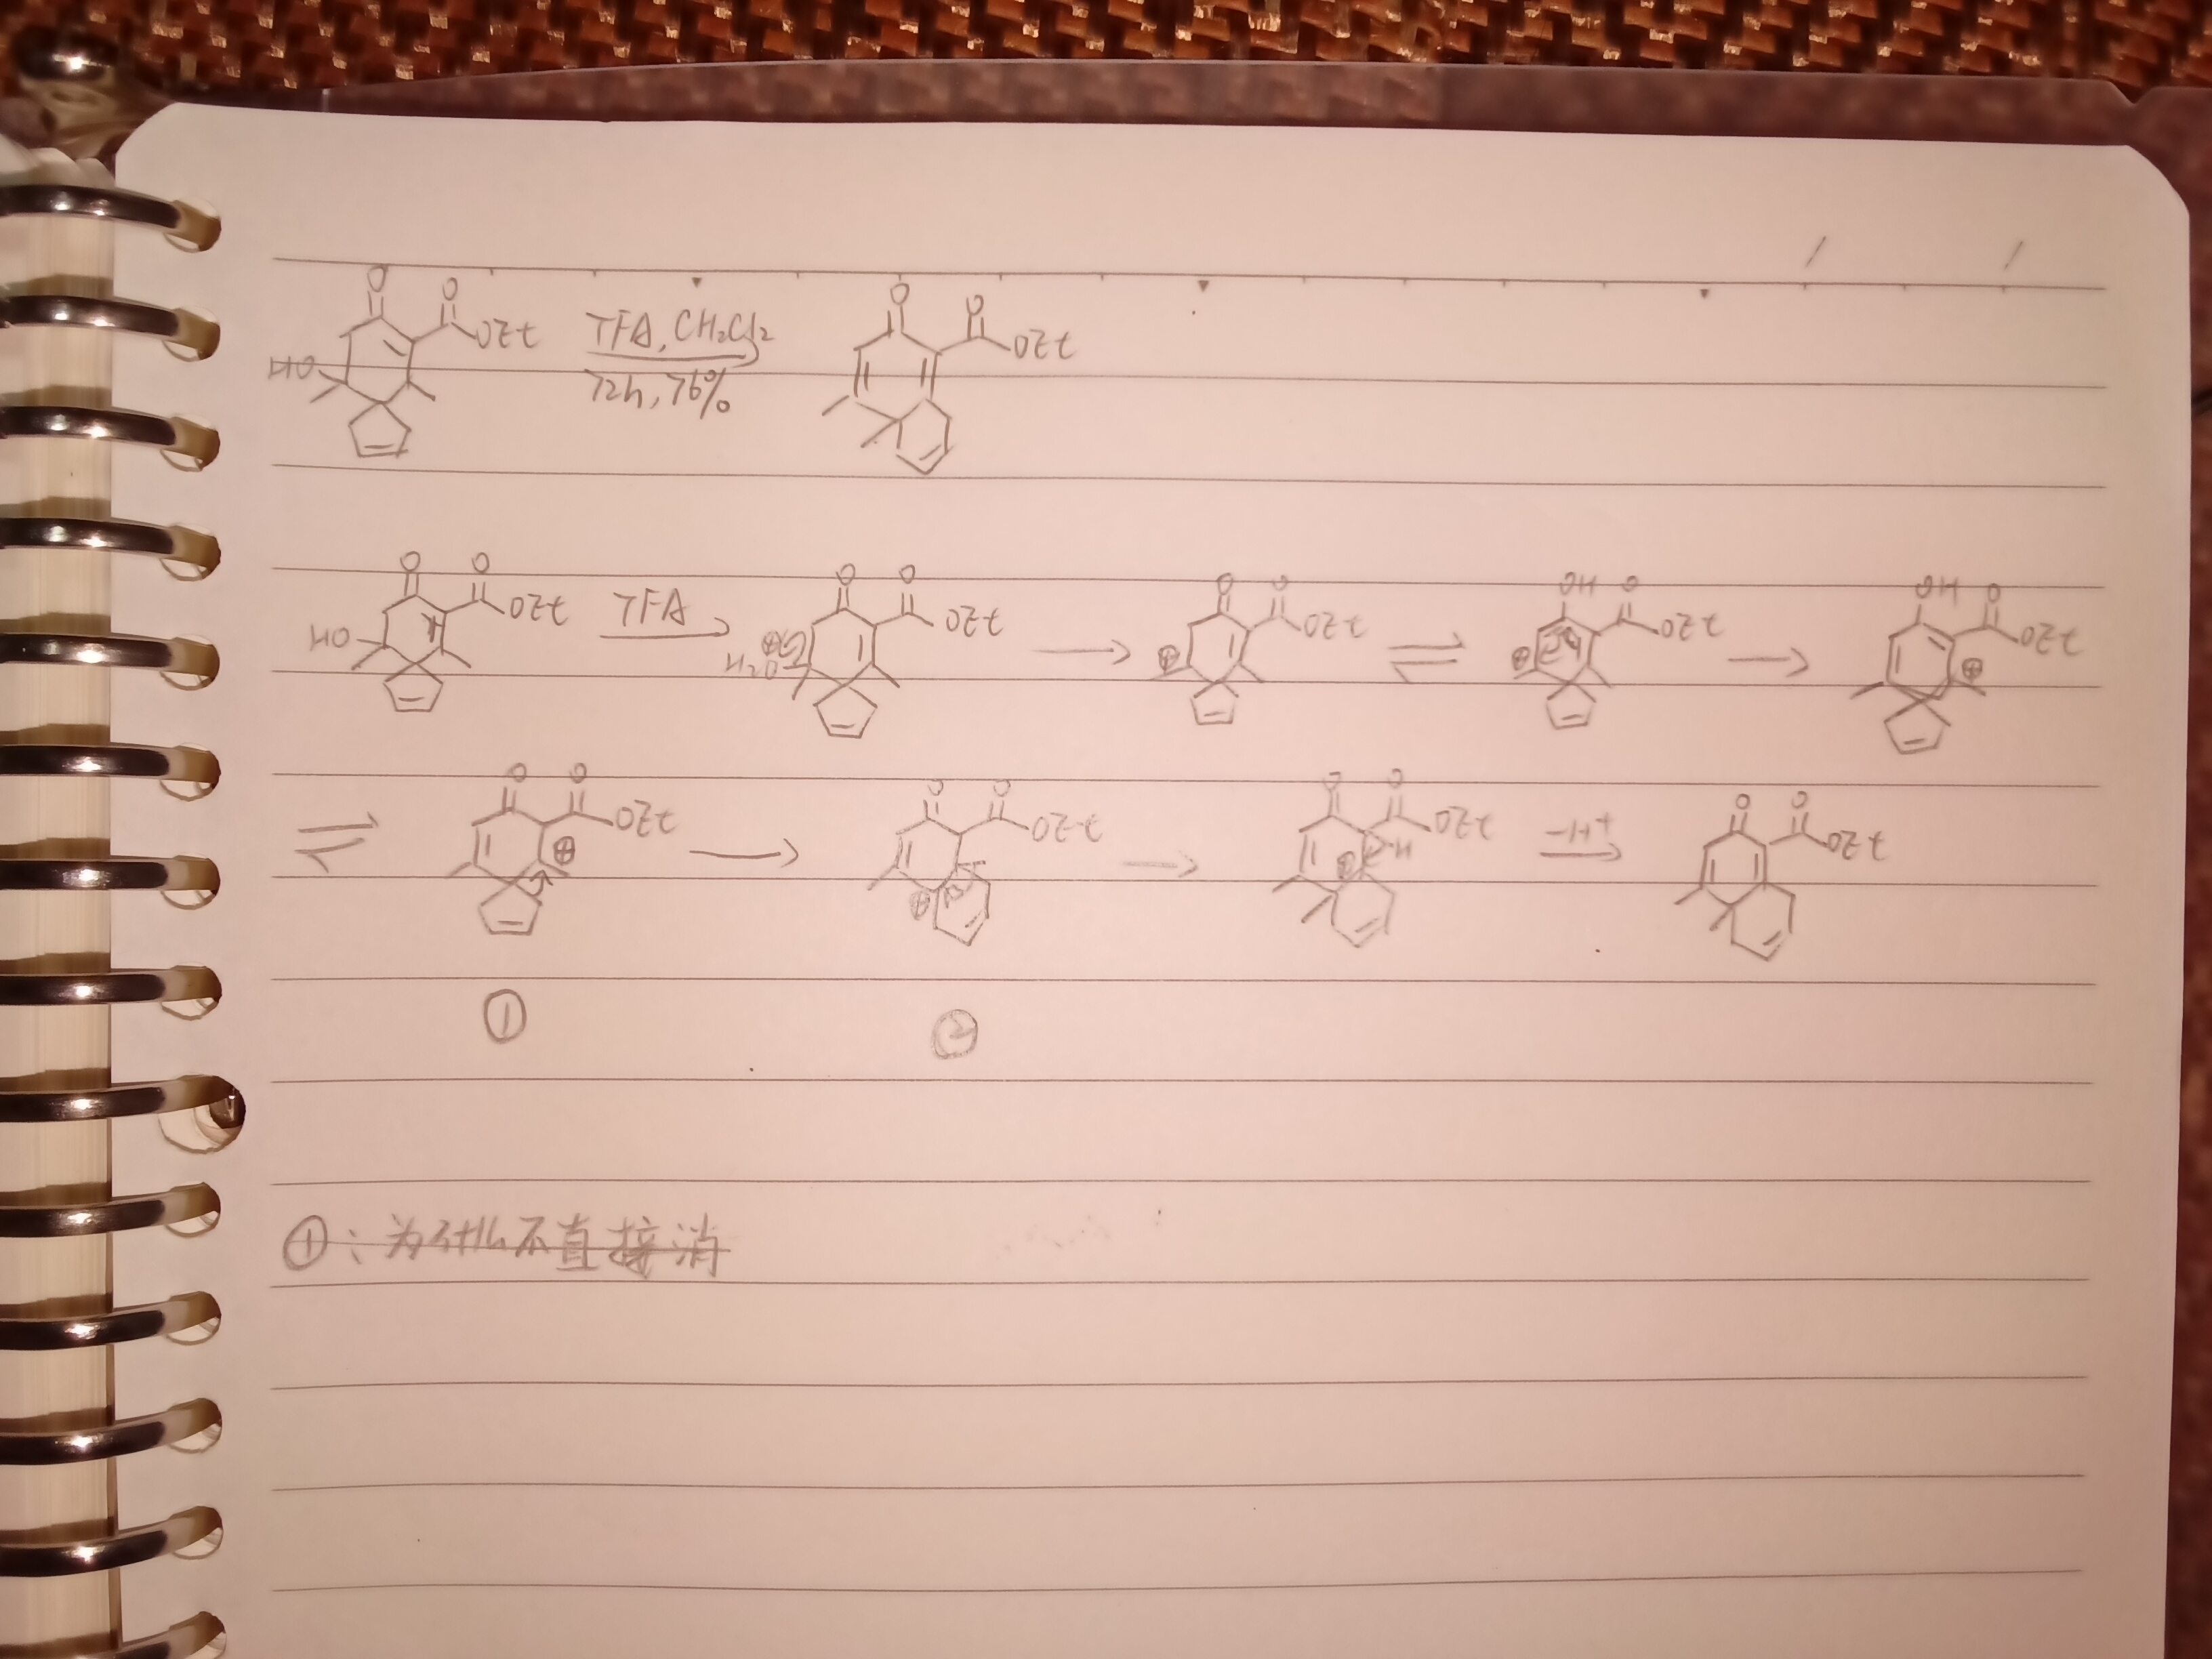 O O O O
OEt TFA, CH₂Cl₂ OEt
HO 72h, 76%
O O O O O O OH O OH O
HO OEt TFA H₂O⊕ OEt ⊕ OEt ⇌ ⊕ OEt ⊕ OEt
O O O O O O O O
⇌ ⊕ OEt ⊕ OEt ⊕ H OEt -H⁺ OEt
① ②
①：为什么不直接消